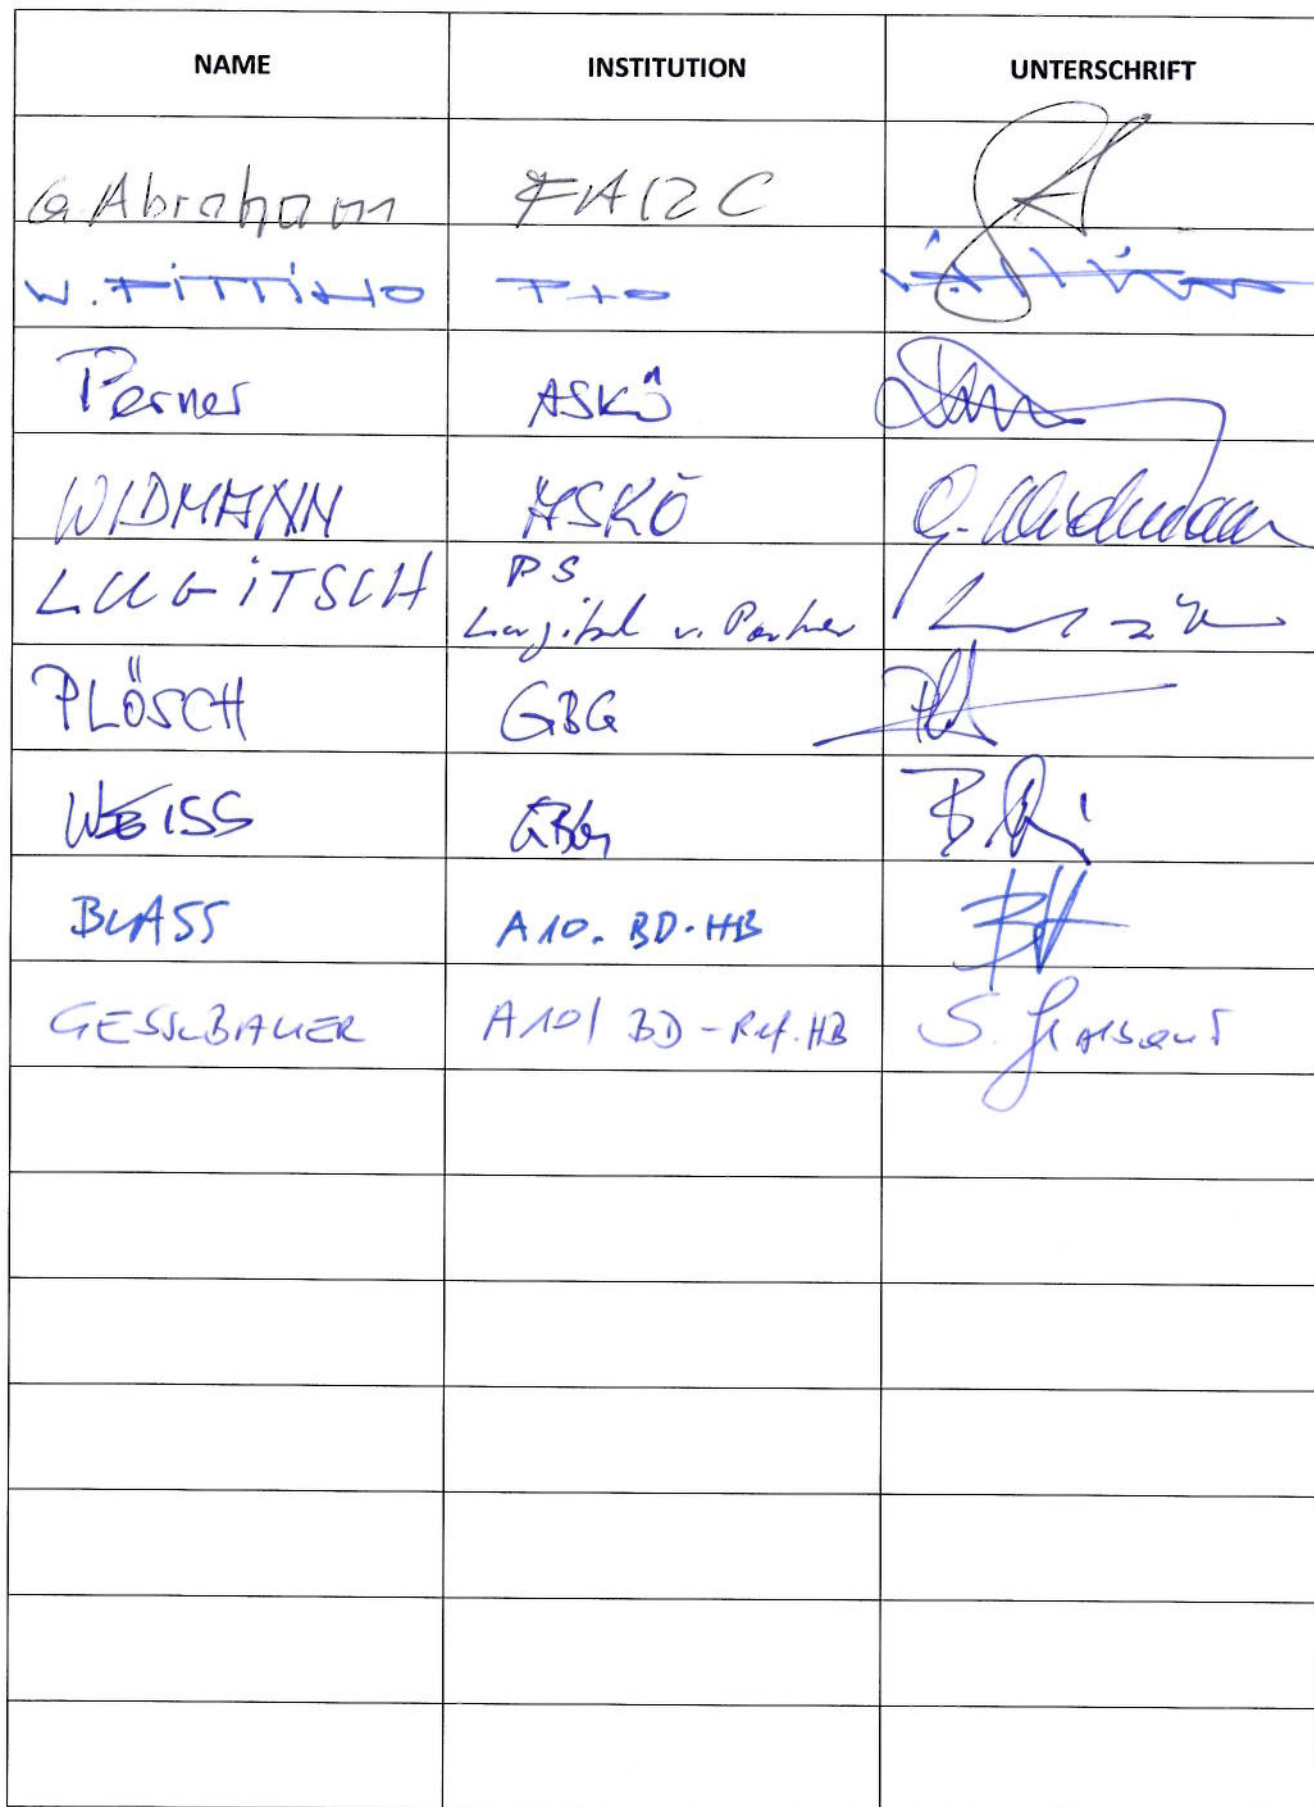 NAME INSTITUTION UNTERSCHRIFT
G. Abraham FA12C
W.
Perner ASKÖ
WIDMANN ASKÖ G. Widmann
LUGITSCH PS
Partner
PLÖSCH GBG
WEISS GBG
BLASS A10. BD-HB
GESSLBAUER A10/ BD-Ref. HB S.